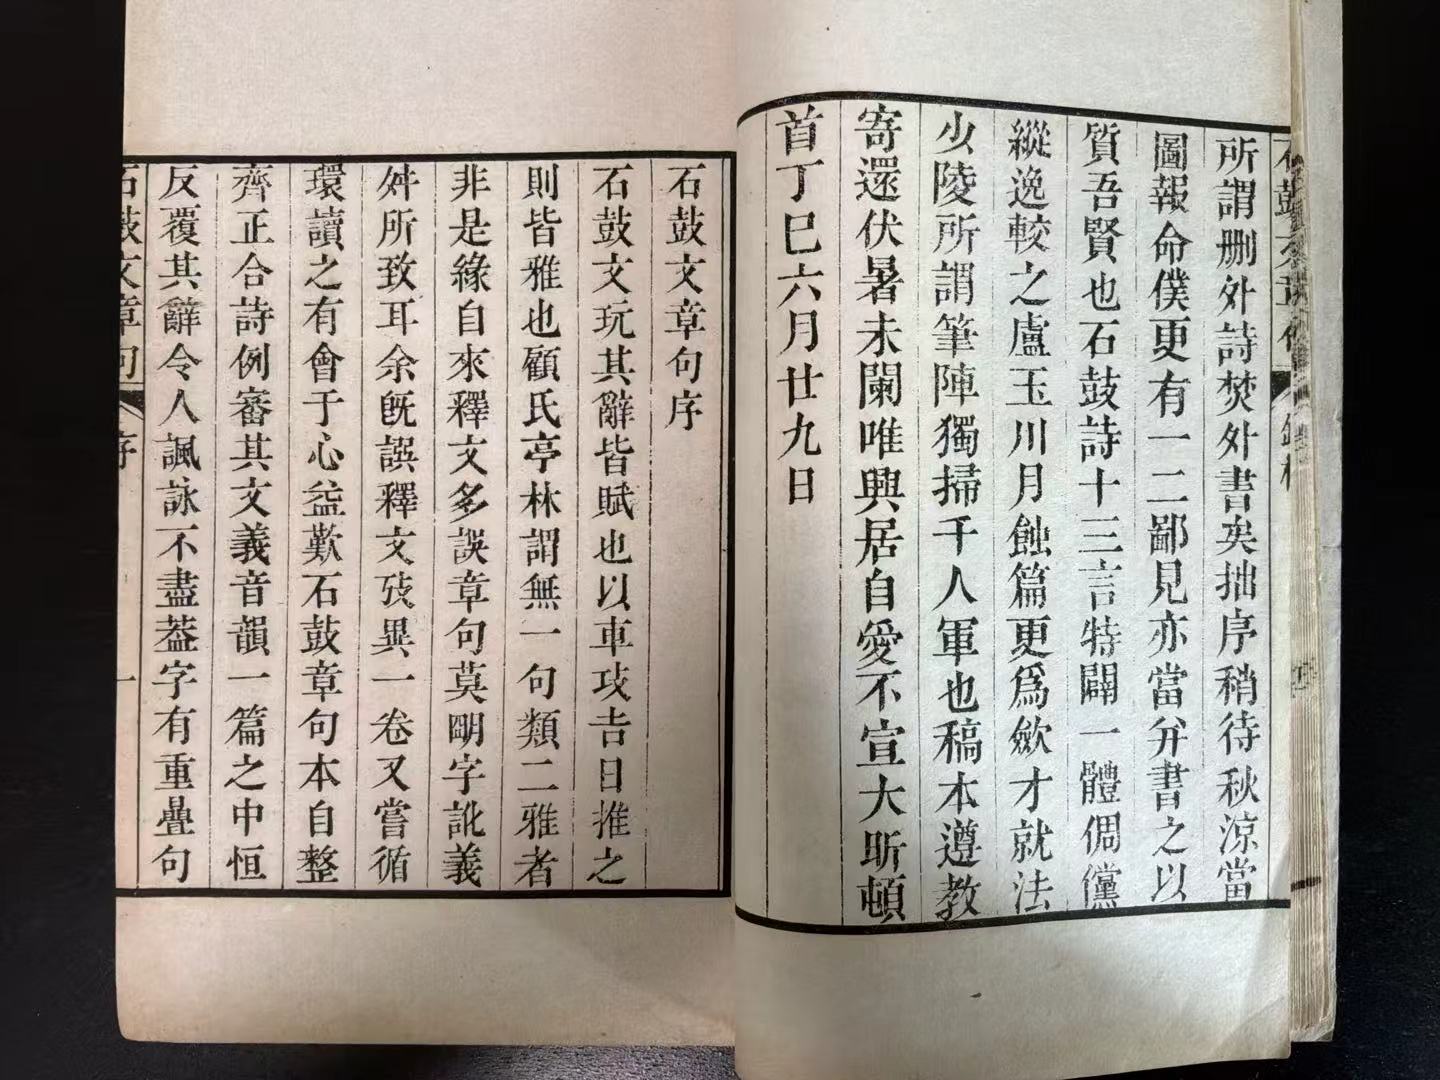 所謂删外詩焚外書矣拙序稍待秋涼當
圖報命僕更有一二鄙見亦當并書之以
質吾賢也石鼓詩十三言特闢一體倜儻
縱逸較之盧玉川月蝕篇更爲歛才就法
少陵所謂筆陣獨掃千人軍也稿本遵教
寄還伏暑未闌唯興居自愛不宣大昕頓
首丁巳六月廿九日
石鼓文章句序
石鼓文玩其辭皆賦也以車攻吉日推之
則皆雅也顧氏亭林謂無一句類二雅者
非是緣自來釋文多誤章句莫朙字訛義
舛所致耳余旣譔釋文攷異一卷又嘗循
環讀之有會于心益歎石鼓章句本自整
齊正合詩例審其文義音韻一篇之中恒
反覆其辭令人諷詠不盡葢字有重疊句
石鼓文章句
序
一